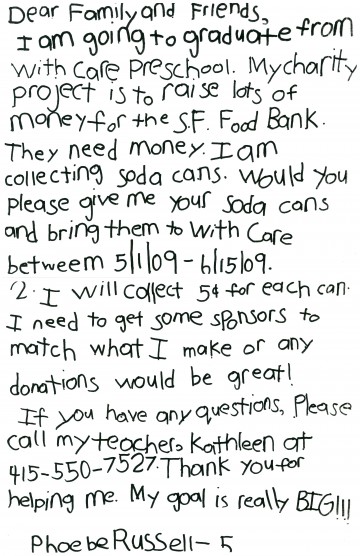 Dear Family and Friends,
I am going to graduate from
With Care Preschool. My charity
project is to raise lots of
money for the S.F. Food Bank.
They need money. I am
collecting soda cans. Would you
please give me your soda cans
and bring them to With Care
betweem 5/1/09 - 6/15/09.
2. I will collect 5¢ for each can.
I need to get some sponsors to
match what I make or any
donations would be great!
If you have any questions, Please
call my teacher, Kathleen at
415-550-7527. Thank you for
helping me. My goal is really BIG!!!
Phoebe Russell - 5